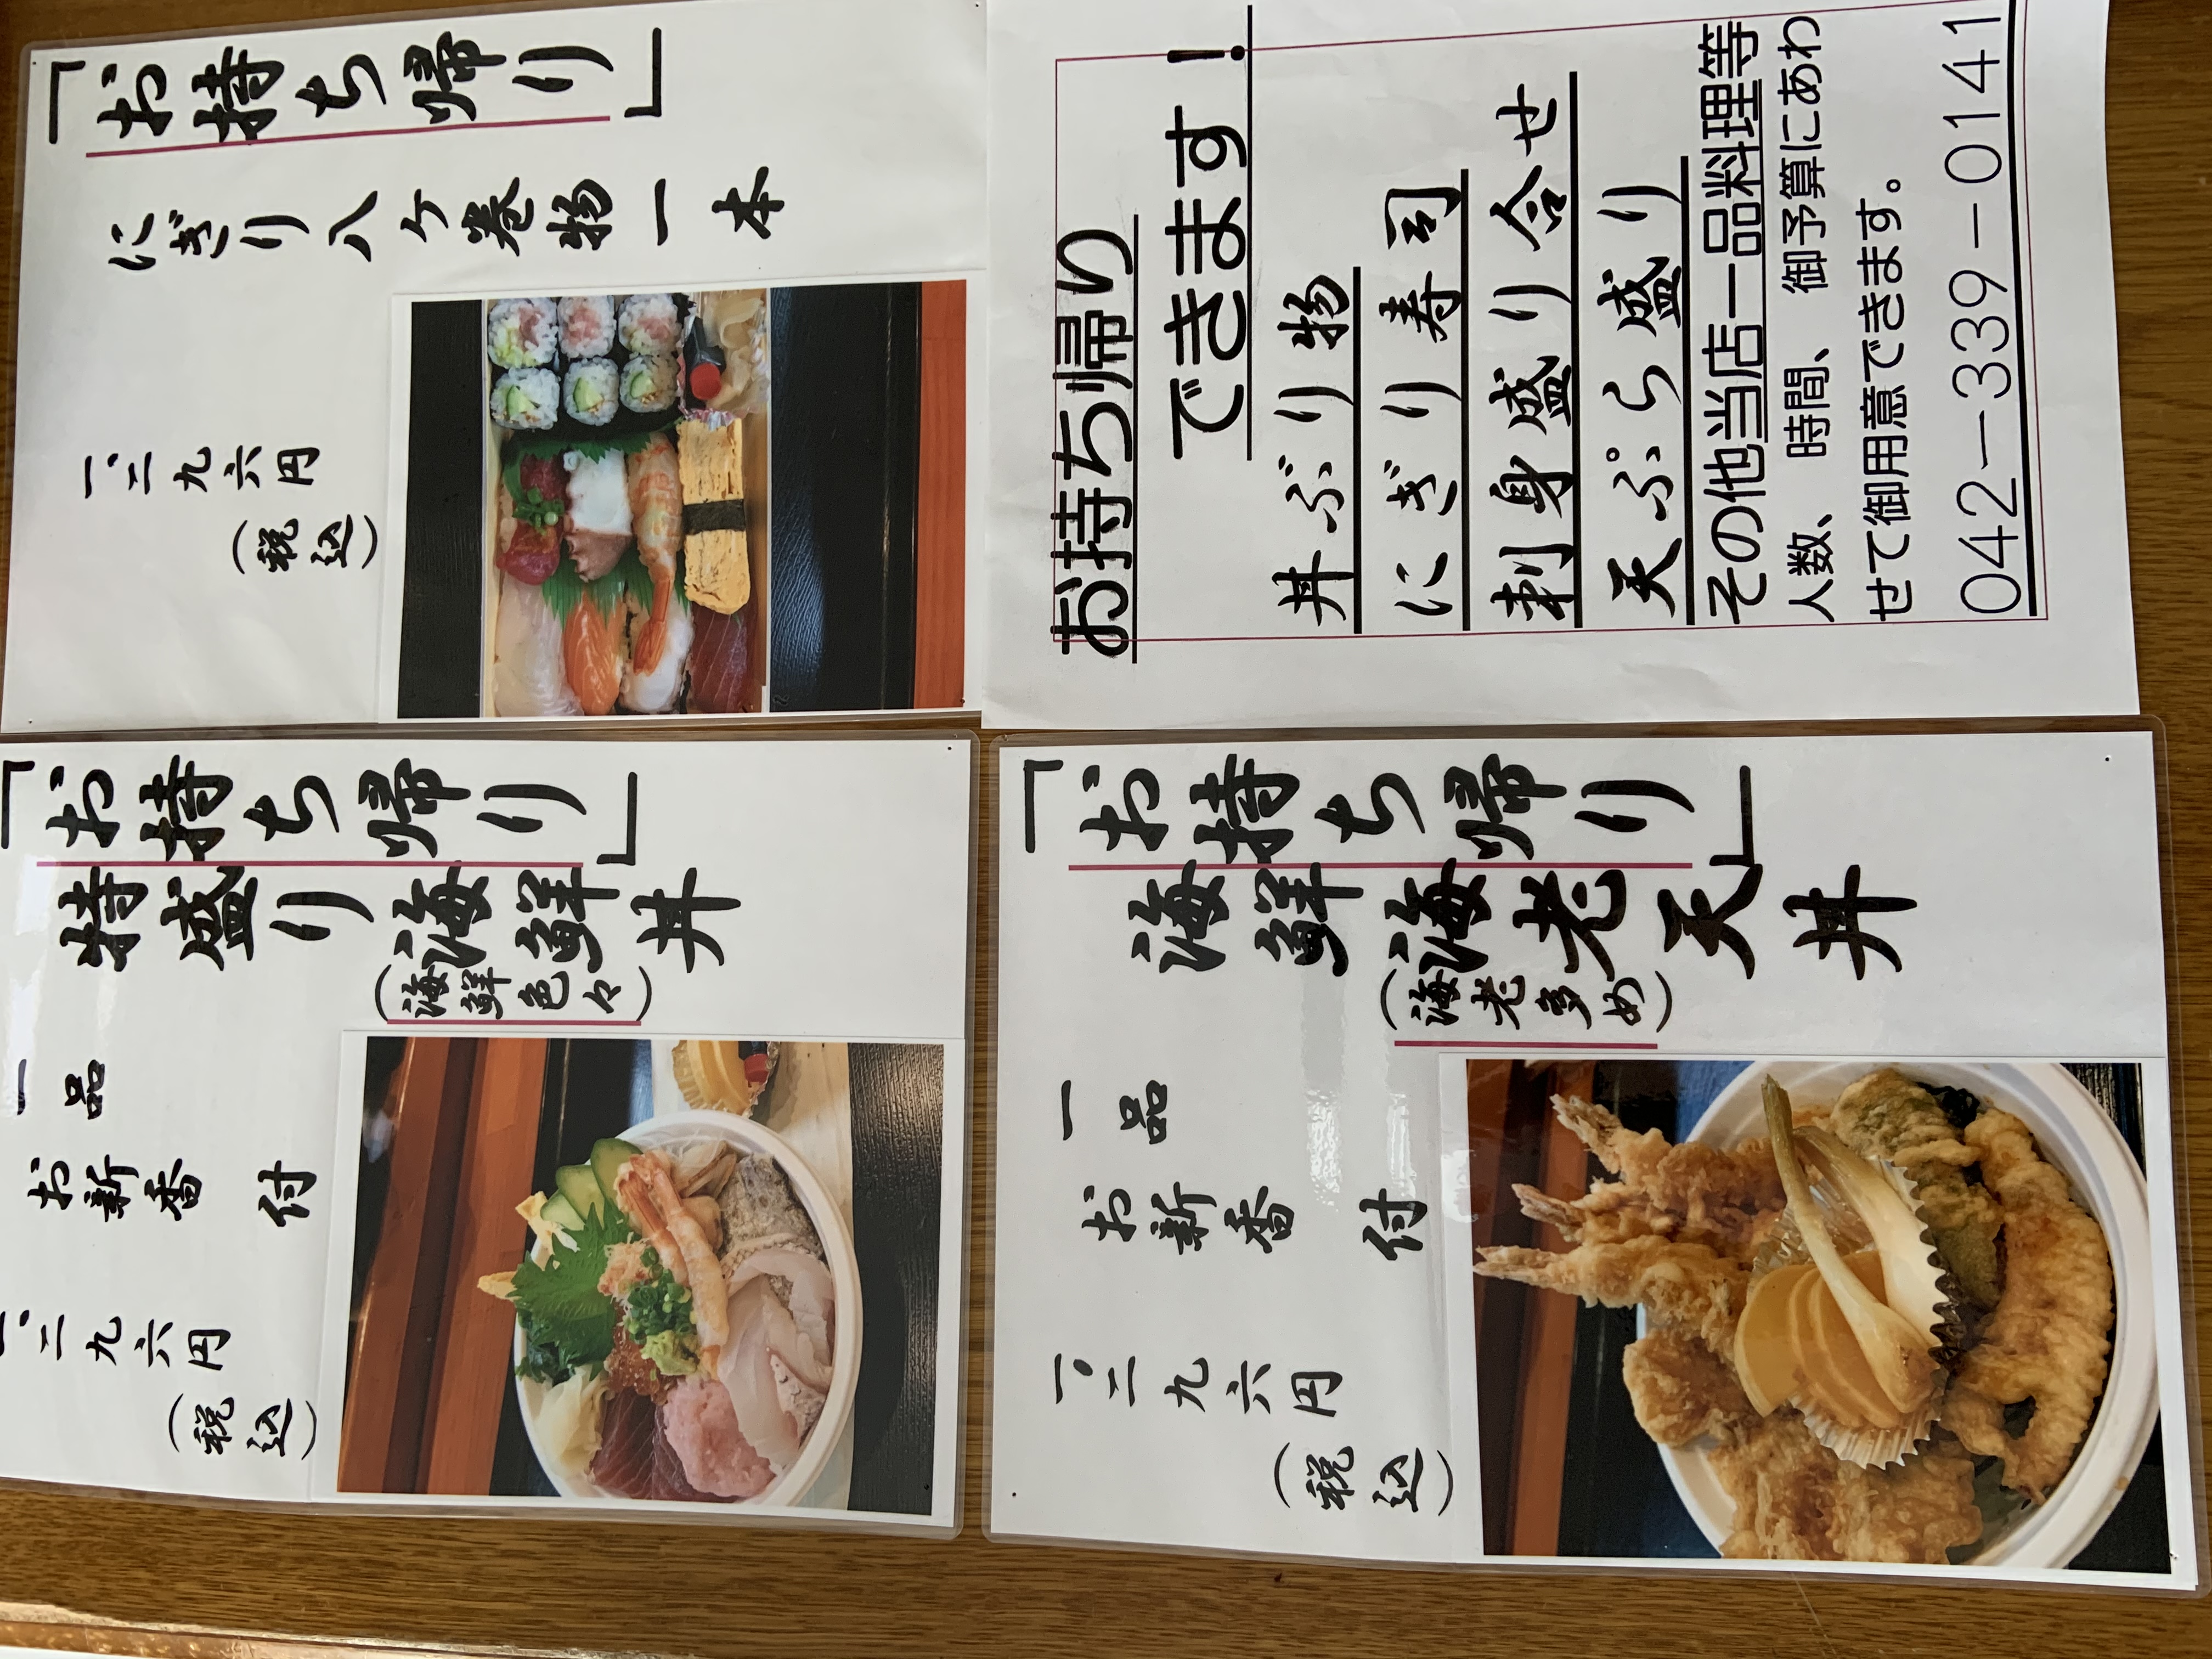 「お持ち帰り」
にぎり八ケ巻物一本
一、二九六円
(税込)
お持ち帰り
できます!
丼ぶり物
にぎり寿司
刺身盛り合せ
天ぷら盛り
その他当店一品料理等
人数、時間、御予算にあわ
せて御用意できます。
042-339-0141
「お持ち帰り」
特盛り海鮮丼
(海鮮色々)
一品
お新香 付
一、二九六円
(税込)
「お持ち帰り」
海鮮海老天丼
(海老多め)
一品
お新香 付
一、二九六円
(税込)